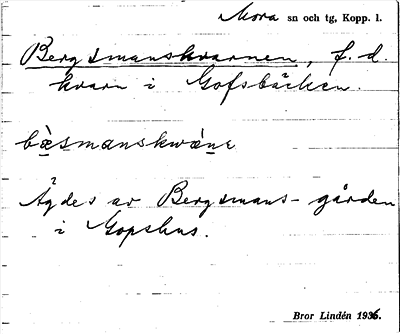 Mora sn och tg, Kopp. l.
Bergsmanskvarnen, f. d.
kvarn i Gofsbäcken.
bæ̀smanskwæ̀ne
Ägdes av Bergsmans-gården
i Gopshus.
Bror Lindén 1936.